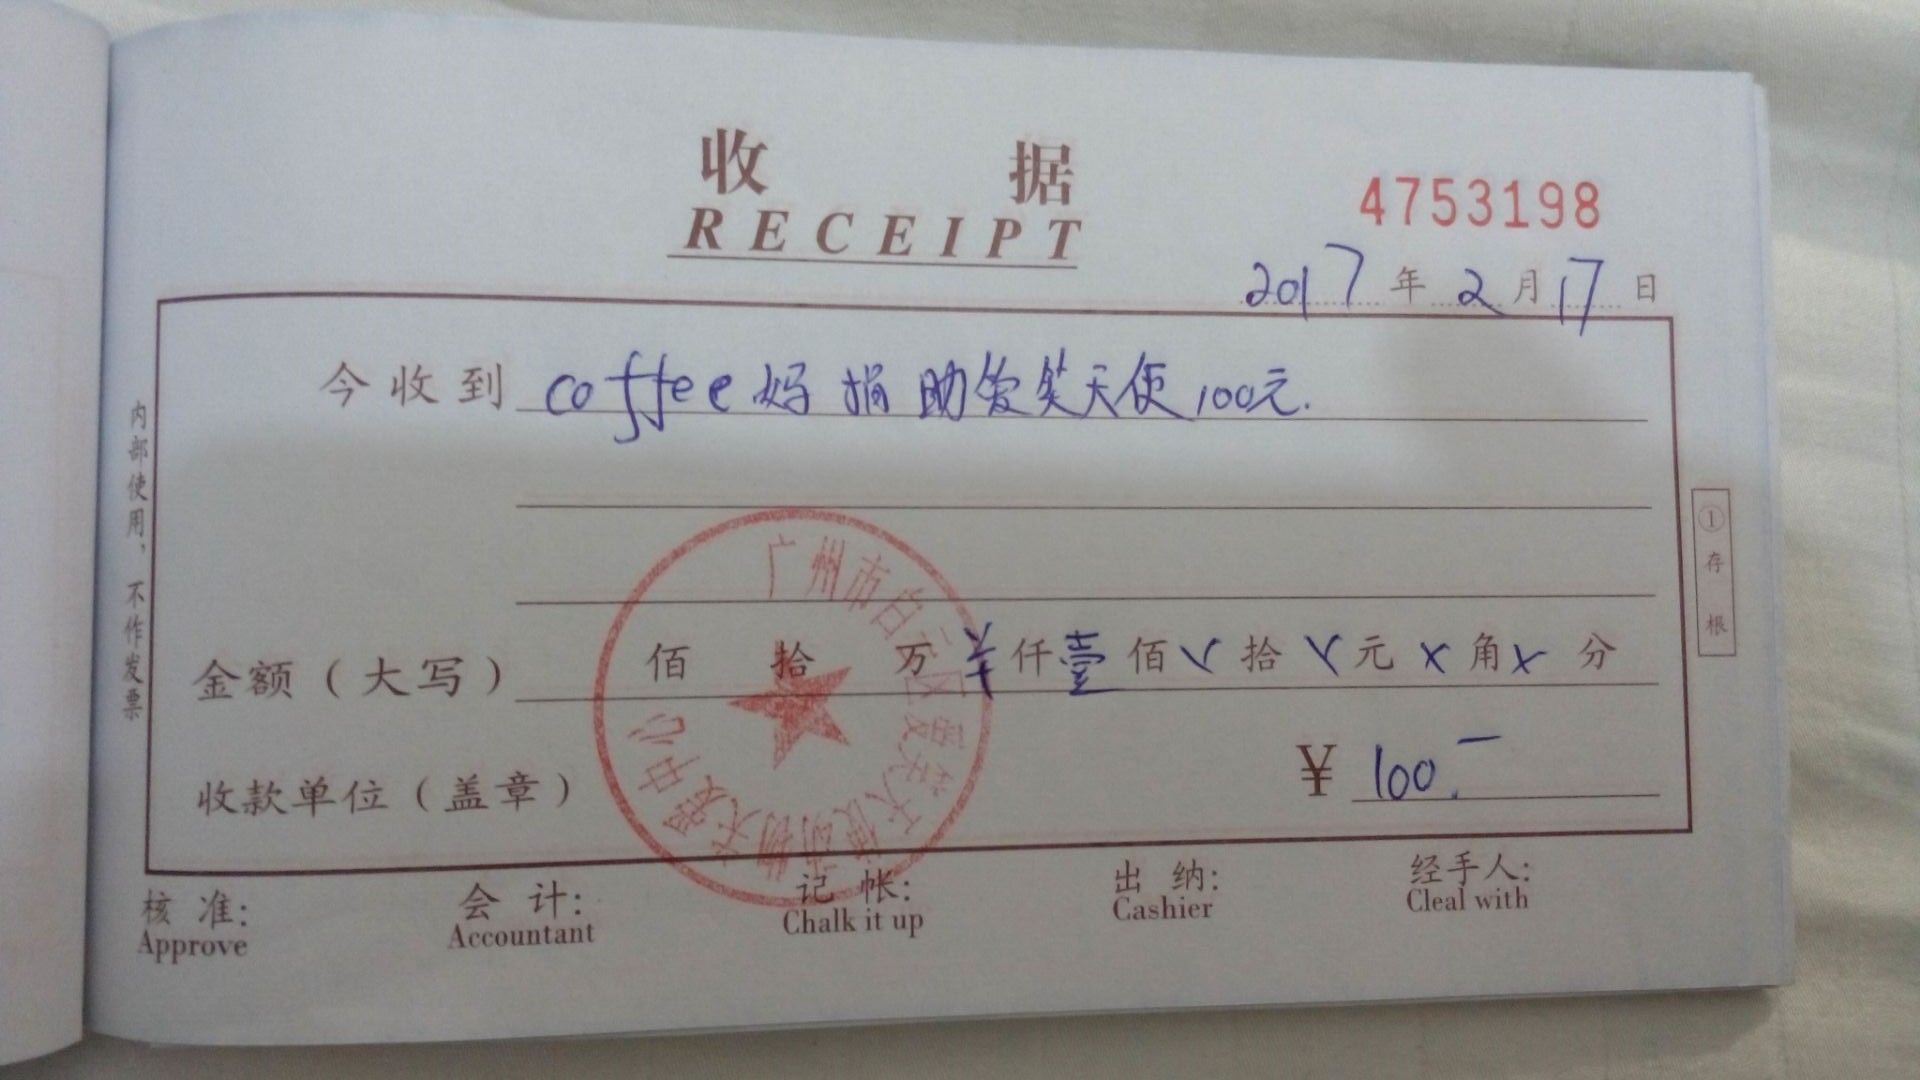 收 据
RECEIPT
4753198
2017年2月17日
今收到 coffee妈捐助爱笑天使100元.
金额（大写） 佰 拾 万 ¥ 仟 壹 佰 × 拾 × 元 × 角 × 分
收款单位（盖章） ¥ 100.—
广州市白云区爱笑天使动物关爱中心
核 准: 会 计: 记 帐: 出 纳: 经手人:
Approve Accountant Chalk it up Cashier Cleal with
内部使用，不作发票
① 存 根